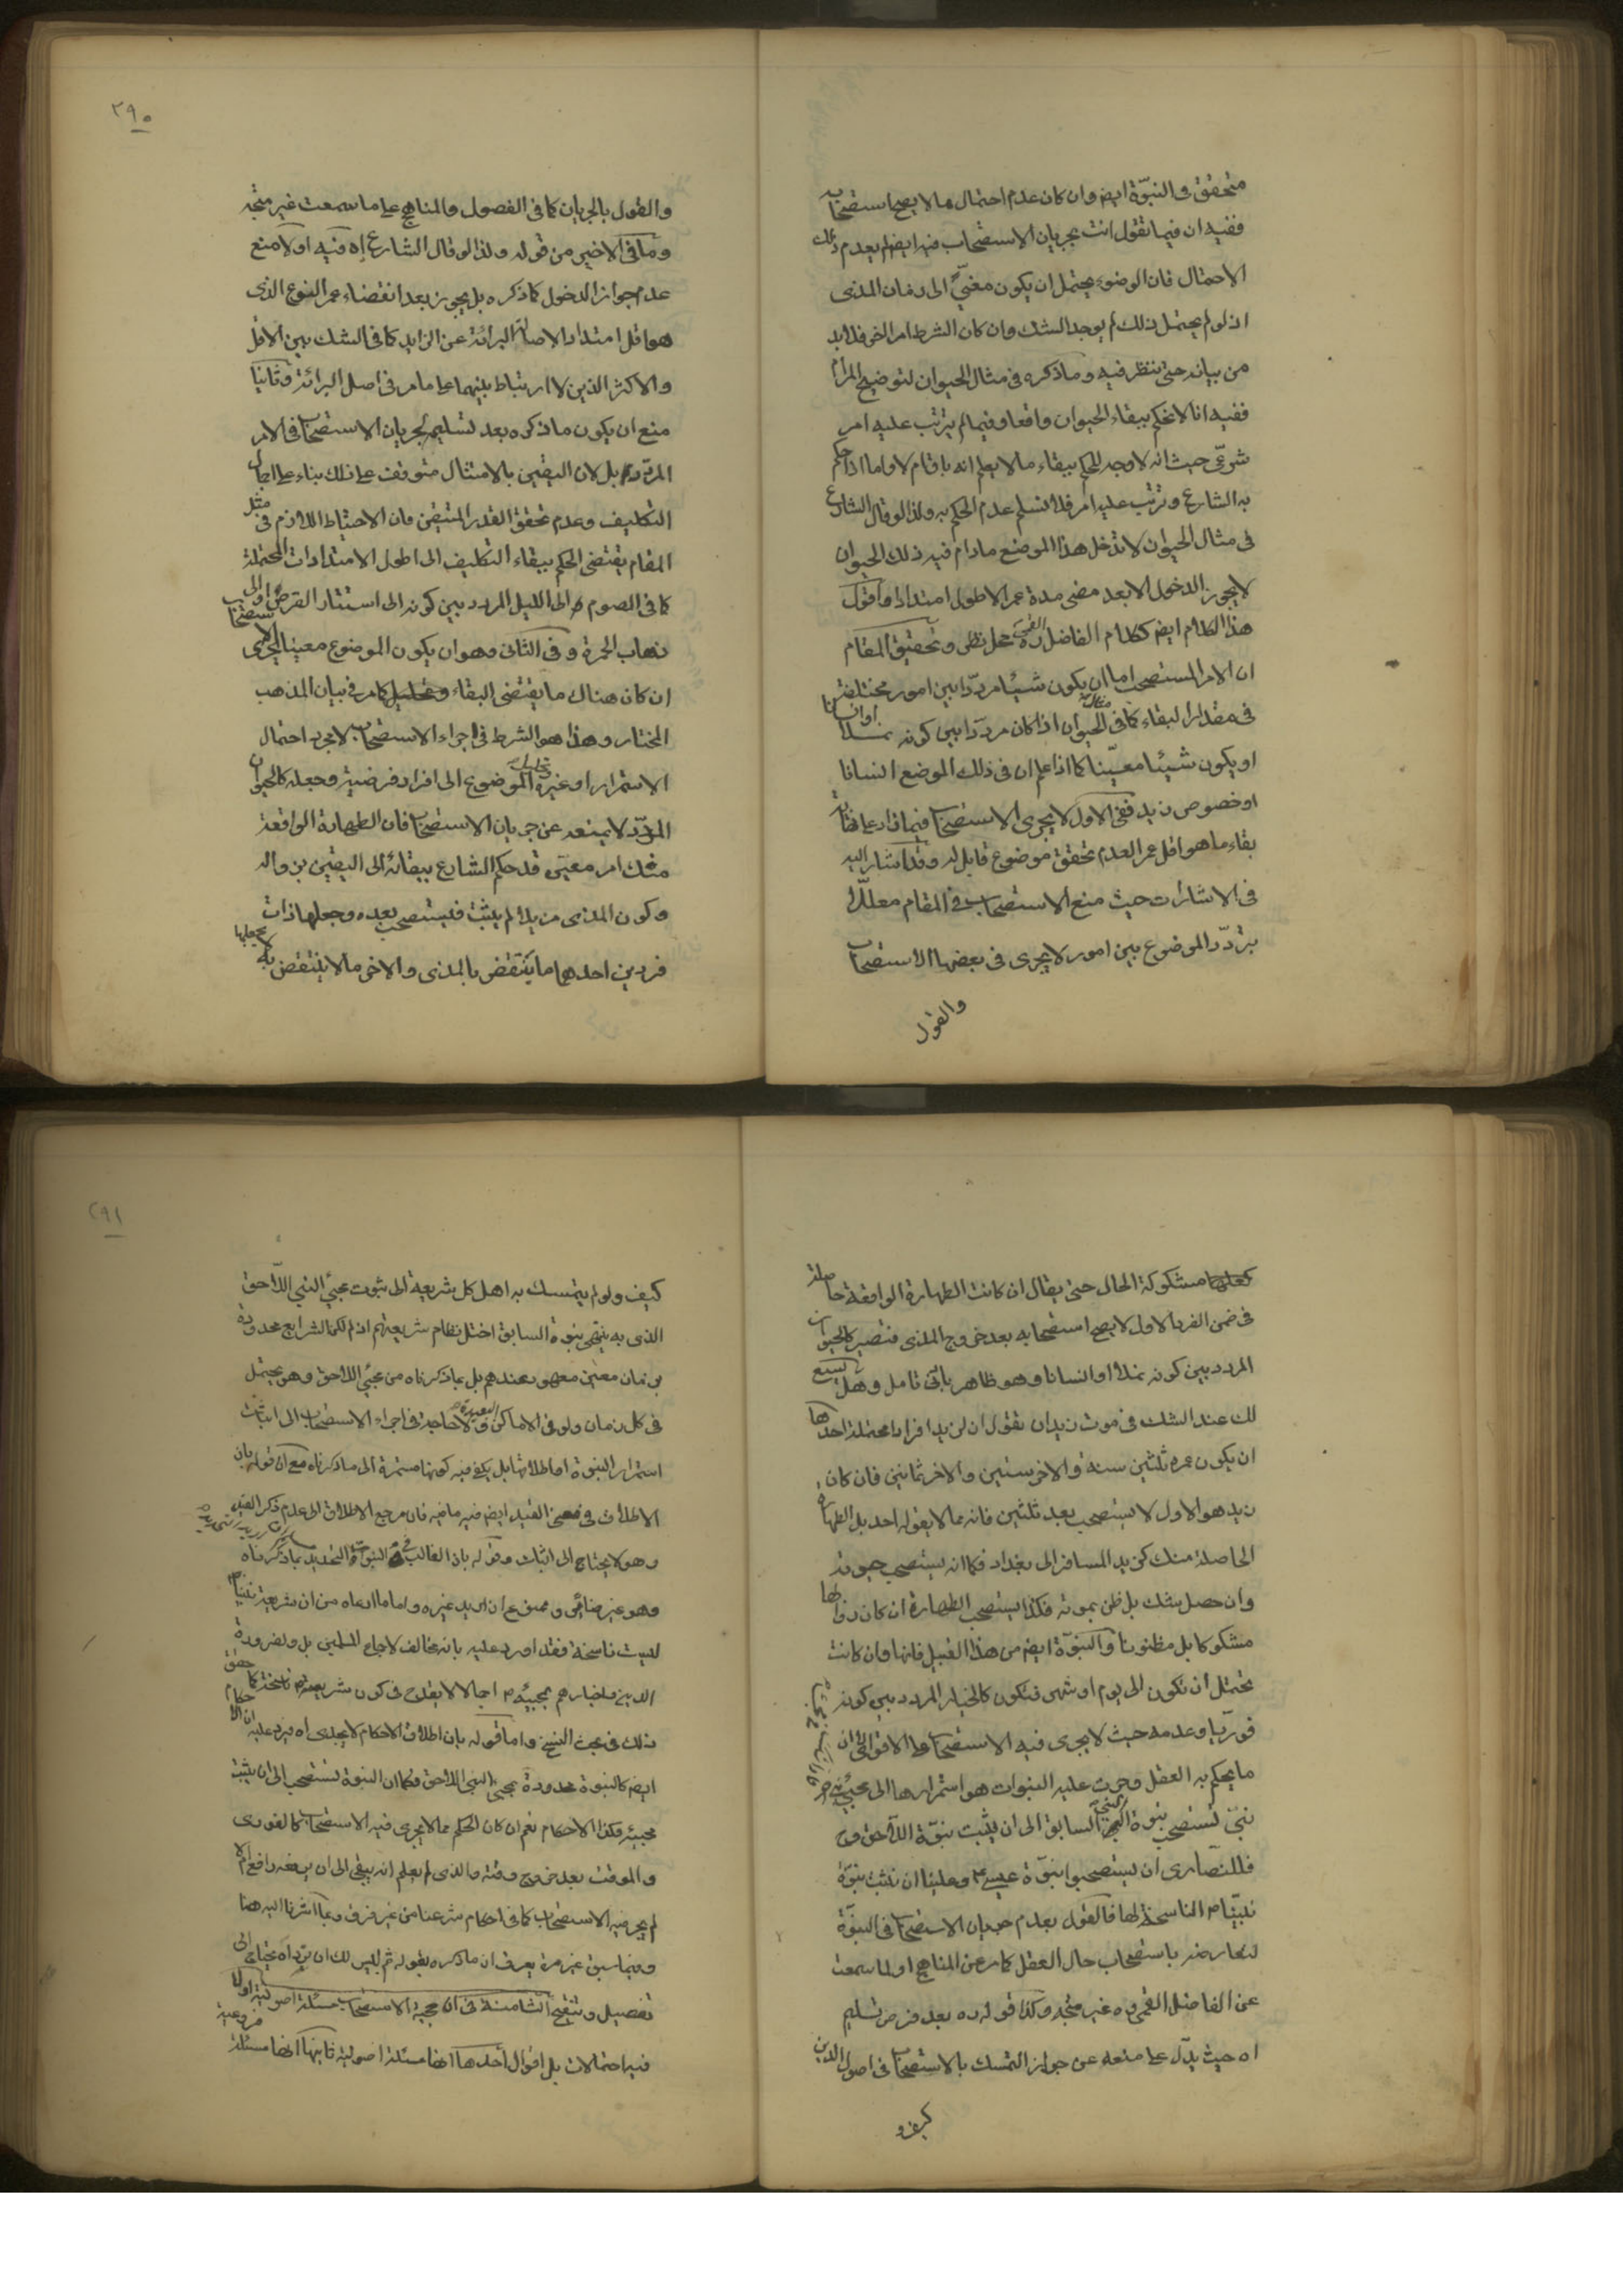 متحقق فى النبوّة ايض وان كان عدم احتمال ما لا يصح استصحابه
ففيه ان فيما تقول انت بجريان الاستصحاب فيه ايض لم يعدم ذلك
الاحتمال فان الوضوء يحتمل ان يكون مغيّى الى زمان المذى
اذ لو لم يحتمل ذلك لم يوجد الشك وان كان الشرط امرا اخر فلا بد
من بيانه حتى ينظر فيه وما ذكره فى مثال الحيوان لتوضيح المرام
ففيه انا لا نحكم ببقاء الحيوان واقعا وفيما لم يترتب عليه امر
شرعى حيث انه لا وجه للحكم ببقاء ما لا يعلم انه باق ام لا واما اذا حكم
به الشارع وترتب عليه امر فلا نسلم عدم الحكم به ولذا لو قال الشارع
فى مثال الحيوان لا تدخل هذا الموضع مادام فيه ذلك الحيوان
لا يجوز الدخول الا بعد مضى مدة عمر الاطول امتدادا واقول
هذا الكلام ايض ككلام الفاضل القمى ره محل نظر وتحقيق المقام
ان الامر المستصحب اما ان يكون شيئا مردّدا بين امور مختلفة
فى مقدار البقاء كما فى مثال الحيوان اذا كان مردّدا بين كونه نملا او انسانا
او يكون شيئا معيّنا كما اذا علم ان فى ذلك الموضع انسانا
او خصوص زيد ففى الاول لا يجرى الاستصحاب فيما زاد على
بقاء ما هو اقل عمرا لعدم تحقق موضوع قابل له وقد اشار اليه
فى الاشارات حيث منع الاستصحاب فى المقام معللا
بتردّد الموضوع بين امور لا يجرى فى بعضها الاستصحاب
والقول
٢٩٠
والقول بالجريان كما فى الفصول والمناهج على ما سمعت غير متجه
وما فى الاخير من قوله ولذا لو قال الشارع اه ففيه اولا منع
عدم جواز الدخول كما ذكره بل يجوز بعد انقضاء عمر النوع الذى
هو اقل امتدادا لاصالة البرائة عن الزايد كما فى الشك بين الاقل
والاكثر الذين لا ارتباط بينهما على ما مر فى اصل البرائة وثانيا
منع ان يكون ما ذكره بعد تسليم لجريان الاستصحاب فى الامر
المردد بل لان اليقين بالامتثال متوقف على ذلك بناء على اجمال
التكليف وعدم تحقق القدر المتيقن فان الاحتياط اللازم فى مثل
المقام يقتضى الحكم ببقاء التكليف الى اطول الامتدادات المحتملة
كما فى الصوم الى الليل المردد بين كونه الى استتار القرص او الى
ذهاب الحمرة وفى الثانى وهو ان يكون الموضوع معينا يجرى الاستصحاب
ان كان هناك ما يقتضى البقاء كما مر فى بيان المذهب
المختار وهذا هو الشرط فى اجراء الاستصحاب لا مجرد احتمال
الاستمرار او غيره وتحليل الموضوع الى افراد فرضية وجعله كالحيوان
المردّد لا يمنعه عن جريان الاستصحاب فان الطهارة الواقعة
منك امر معيّن قد حكم الشارع ببقائه الى اليقين بزواله
وكون المذى مزيلا لم يثبت فيستصحب بعده وجعلها ذات
فردين احدهما ما ينتقض بالمذى والاخر ما لا ينتقض به لا يجعلها
مشكوكة الحال حتى يقال ان كانت الطهارة الواقعة حاصلة
فى ضمن الفرد الاول لا يصح استصحابه بعد خروج المذى فتصير كالحيوان
المردد بين كونه نملا او انسانا وهو ظاهر بادنى تامل وهل يسع
لك عند الشك فى موت زيد ان تقول ان لزيد افرادا محتملة احدها
ان يكون عمره ثلثين سنة والاخر ستين والاخر ثمانين فان كان
زيد هو الاول لا يستصحب بعد ثلثين فانه مما لا يقوله احد بل الطهارة
الحاصلة منك كزيد المسافر الى بغداد فكما انه يستصحب حيوته
وان حصل شك بل ظن بموته فكذا يستصحب الطهارة ان كان زوالها
مشكوكا بل مظنونا والنبوّة ايض من هذا القبيل فانها وان كانت
تحتمل ان تكون الى يوم او شهر فتكون كالخيار المردد بين كونه
فوريّا وعدمه حيث لا يجرى فيه الاستصحاب على الاقوى الا ان
ما يحكم به العقل وجرت عليه النبوات هو استمرارها الى مجئ
نبىّ فتستصحب نبوة النبى السابق الى ان يثبت نبوّة اللاحق وح
فللنصارى ان يستصحبوا نبوّة عيسى ع وعلينا ان نثبت نبوّة
نبيّنا ص الناسخة لها فالقول بعدم جريان الاستصحاب فى النبوّة
لتعارضه باستصحاب حال العقل كما مر عن المناهج او لما سمعت
عن الفاضل القمى ره غير متجه وكذا قوله ره بعد فرض تسليم
اه حيث يدلّ على منعه عن جواز التمسك بالاستصحاب فى اصول الدين
كيف و
٢٩١
كيف ولو لم يتمسك به اهل كل شريعة الى ثبوت مجئ النبى اللاحق
الذى به ينتهى نبوة السابق اختل نظام شريعتهم اذ لم تكن الشرايع محدودة
بزمان معين معهود عندهم بل بما ذكرناه من مجئ اللاحق وهو يحتمل
فى كل زمان ولو فى الاماكن البعيدة ولا حاجة فى اجراء الاستصحاب الى اثبات
استمرار النبوة او اطلاقها بل يكفى فيه كونها مستمرة الى ما ذكرناه مع ان قوله بان
الاطلاق فى معنى القيد ايض فيه ما فيه فان مرجع الاطلاق الى عدم ذكر القيد
وهو لا يحتاج الى اثبات وقوله بان الغالب فى النبوّة التحديد بما ذكرناه
وهو غير منافى وممنوع ان اريد غيره واما ما ادعاه من ان شريعة نبينا ص
ليست ناسخة فقد اورد عليه بانه مخالف لاجماع المسلمين بل ولضرورة
الدين واخبارهم بمجيئه ص اجمالا لا يقدح فى كون شريعته ص ناسخة كما حقق
ذلك فى بحث النسخ واما قوله بان اطلاق الاحكام لا يجدى اه فيرد عليه ان الاحكام
ايض كالنبوة محدودة بمجئ النبى اللاحق فكما ان النبوة تستصحب الى ان يثبت
مجيئه فكذا الاحكام نعم ان كان الحكم مما لا يجرى فيه الاستصحاب كالفورى
والموقت بعد خروج وقته والذى لم يعلم انه يبقى الى ان يرفعه رافع ام لا
لم يجر فيه الاستصحاب كما فى احكام شرعنا من غير فرق وبما اشرنا اليه هنا
وفيما سبق غير مرة يعرف ان ما ذكره بقوله ثم ليس لك ان تردّ اه يحتاج الى
تفصيل وتنقيح الثامنة فى ان حجية الاستصحاب مسئلة اصولية او فرعية
فيه احتمالات بل اقوال احدها انها مسئلة اصولية ثانيها انها مسئلة